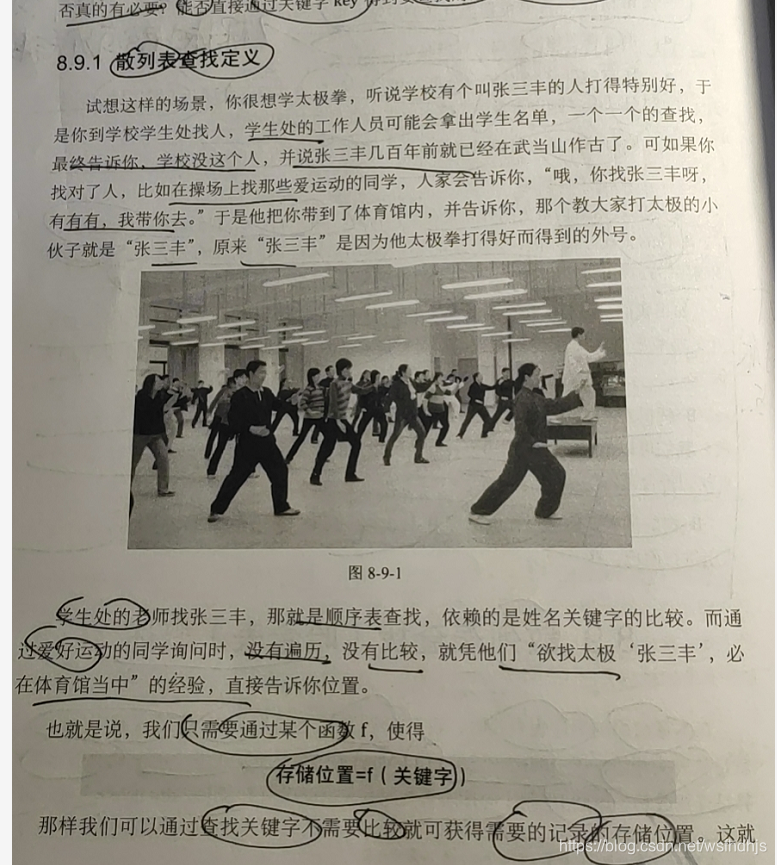 否真的有必要？能否直接通过关键字 key
8.9.1 散列表查找定义
试想这样的场景，你很想学太极拳，听说学校有个叫张三丰的人打得特别好，于
是你到学校学生处找人，学生处的工作人员可能会拿出学生名单，一个一个的查找，
最终告诉你，学校没这个人，并说张三丰几百年前就已经在武当山作古了。可如果你
找对了人，比如在操场上找那些爱运动的同学，人家会告诉你，“哦，你找张三丰呀，
有有有，我带你去。”于是他把你带到了体育馆内，并告诉你，那个教大家打太极的小
伙子就是“张三丰”，原来“张三丰”是因为他太极拳打得好而得到的外号。
图 8-9-1
学生处的老师找张三丰，那就是顺序表查找，依赖的是姓名关键字的比较。而通
过爱好运动的同学询问时，没有遍历，没有比较，就凭他们“欲找太极‘张三丰’，必
在体育馆当中”的经验，直接告诉你位置。
也就是说，我们只需要通过某个函数 f，使得
存储位置=f（关键字）
那样我们可以通过查找关键字不需要比较就可获得需要的记录的存储位置。这就
https://blog.csdn.net/wsfhdhjs